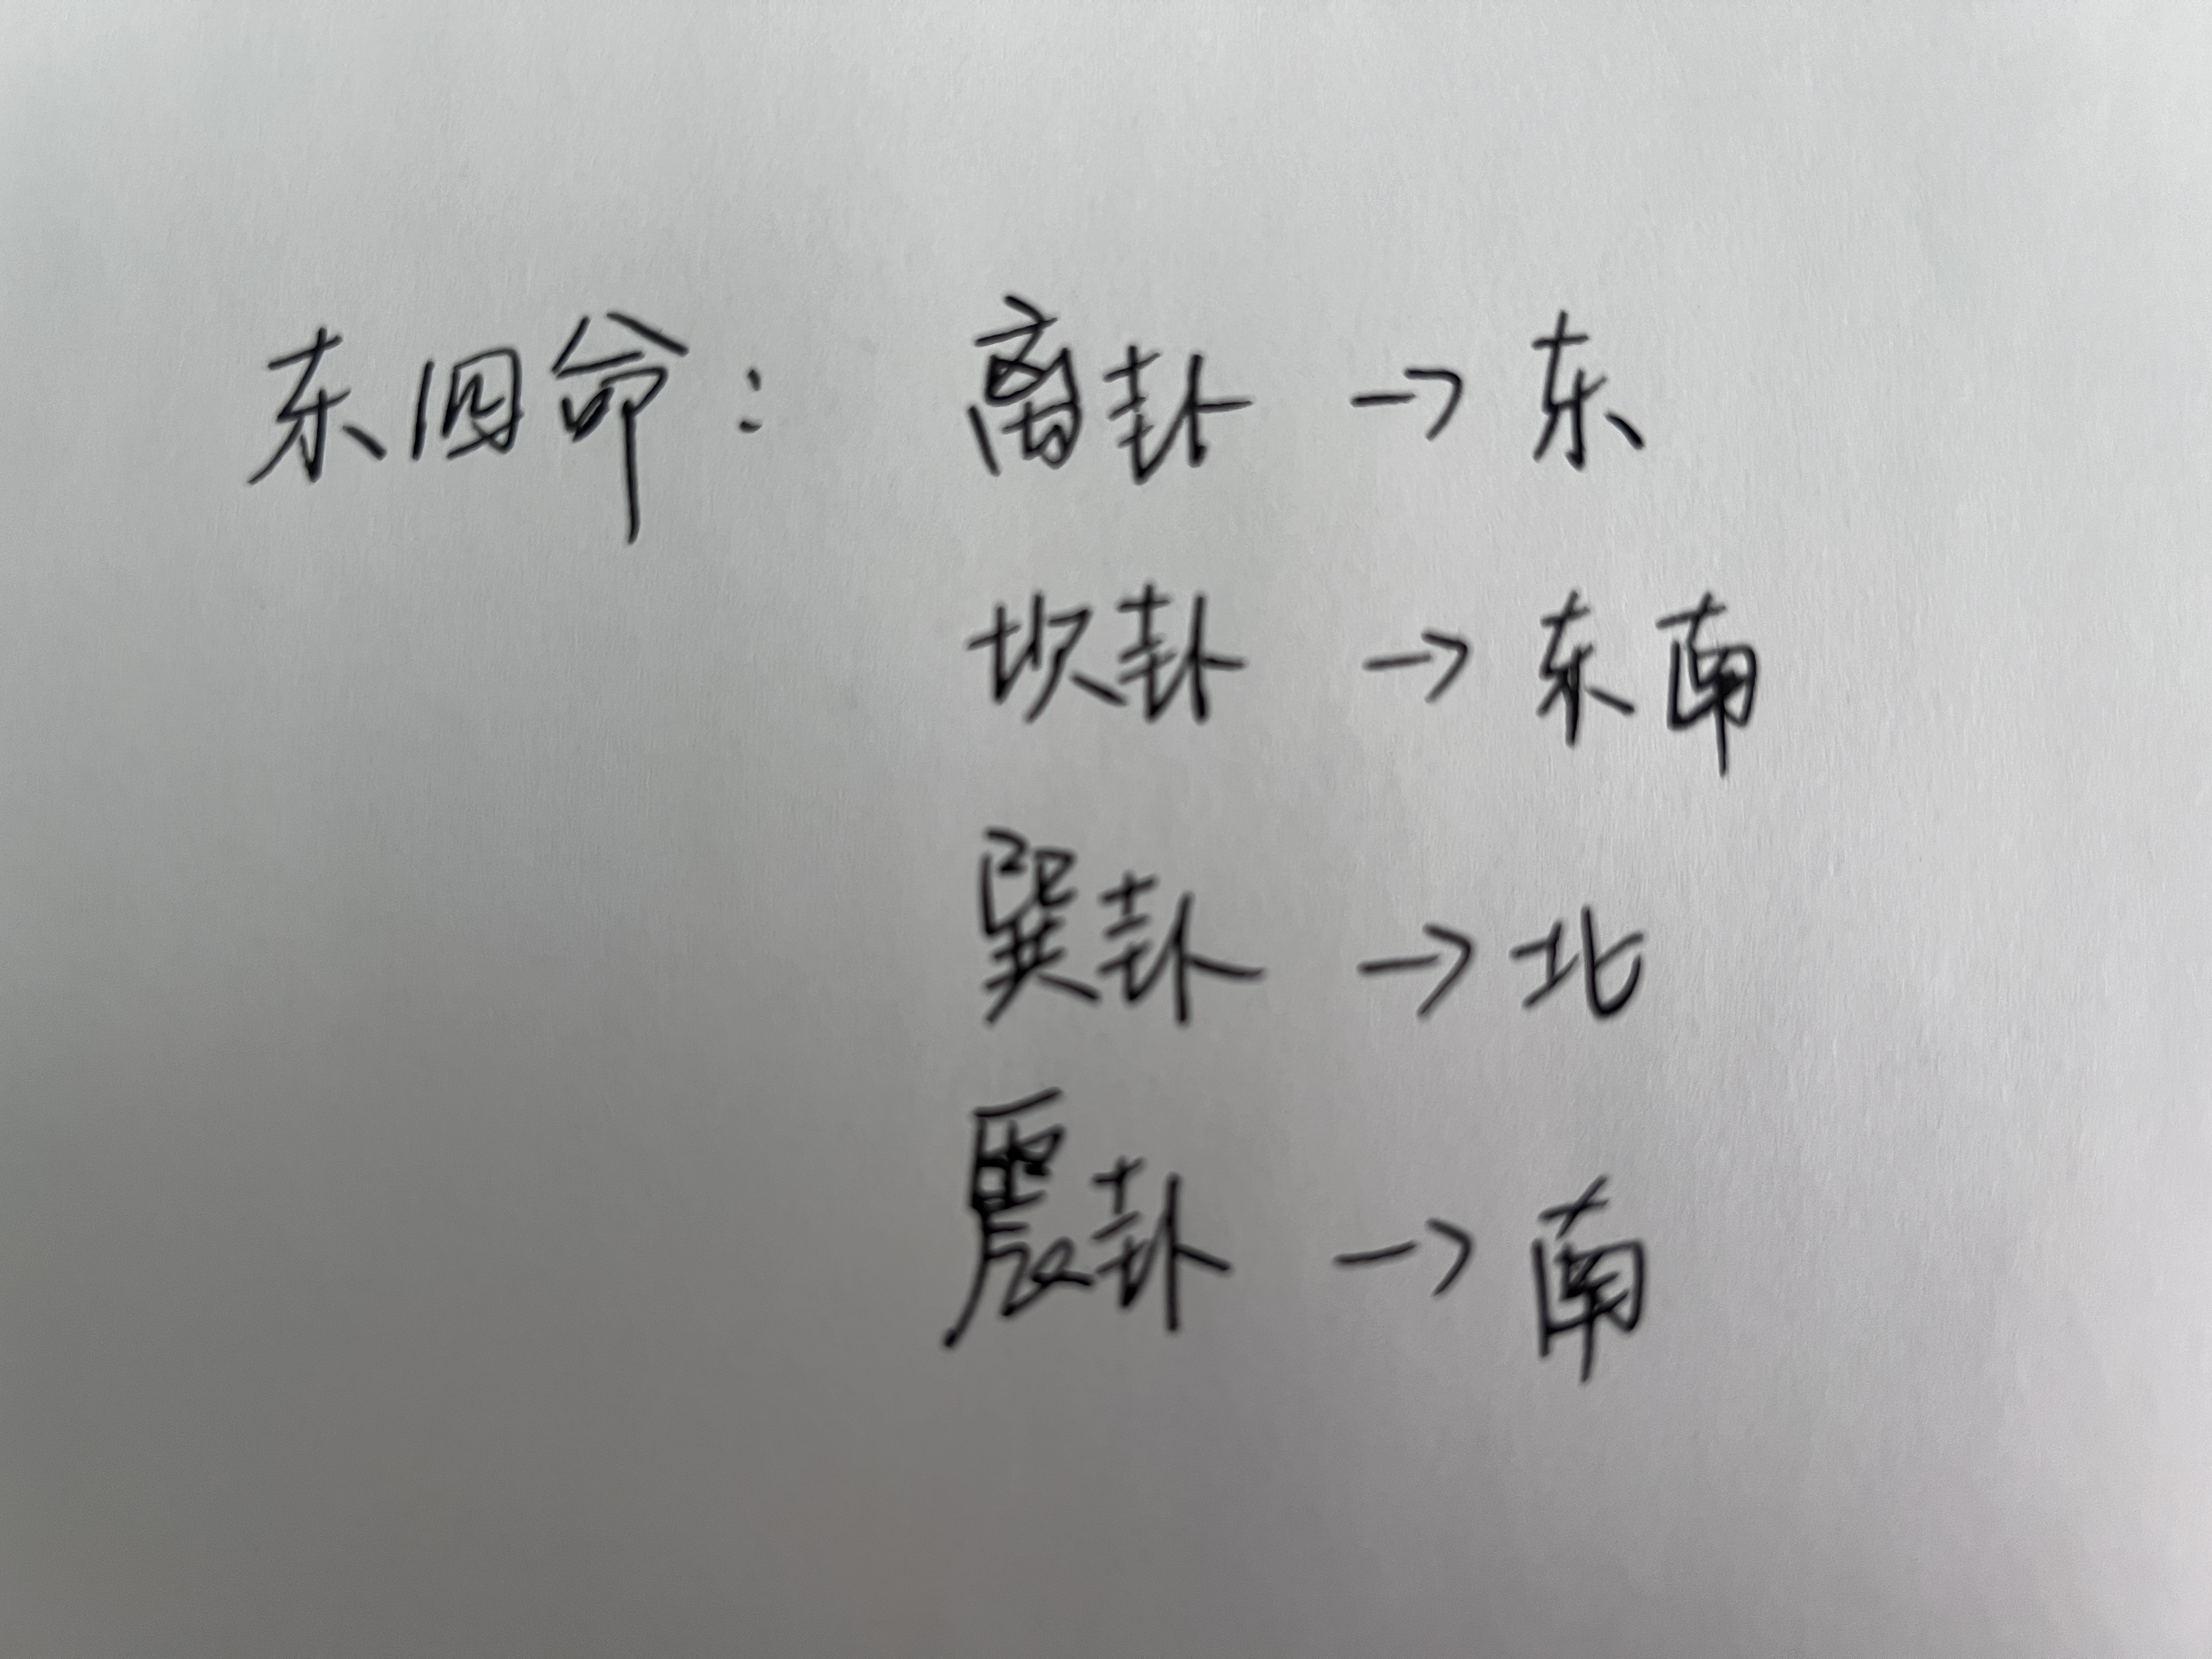 东四命： 离卦 → 东
坎卦 → 东南
巽卦 → 北
震卦 → 南